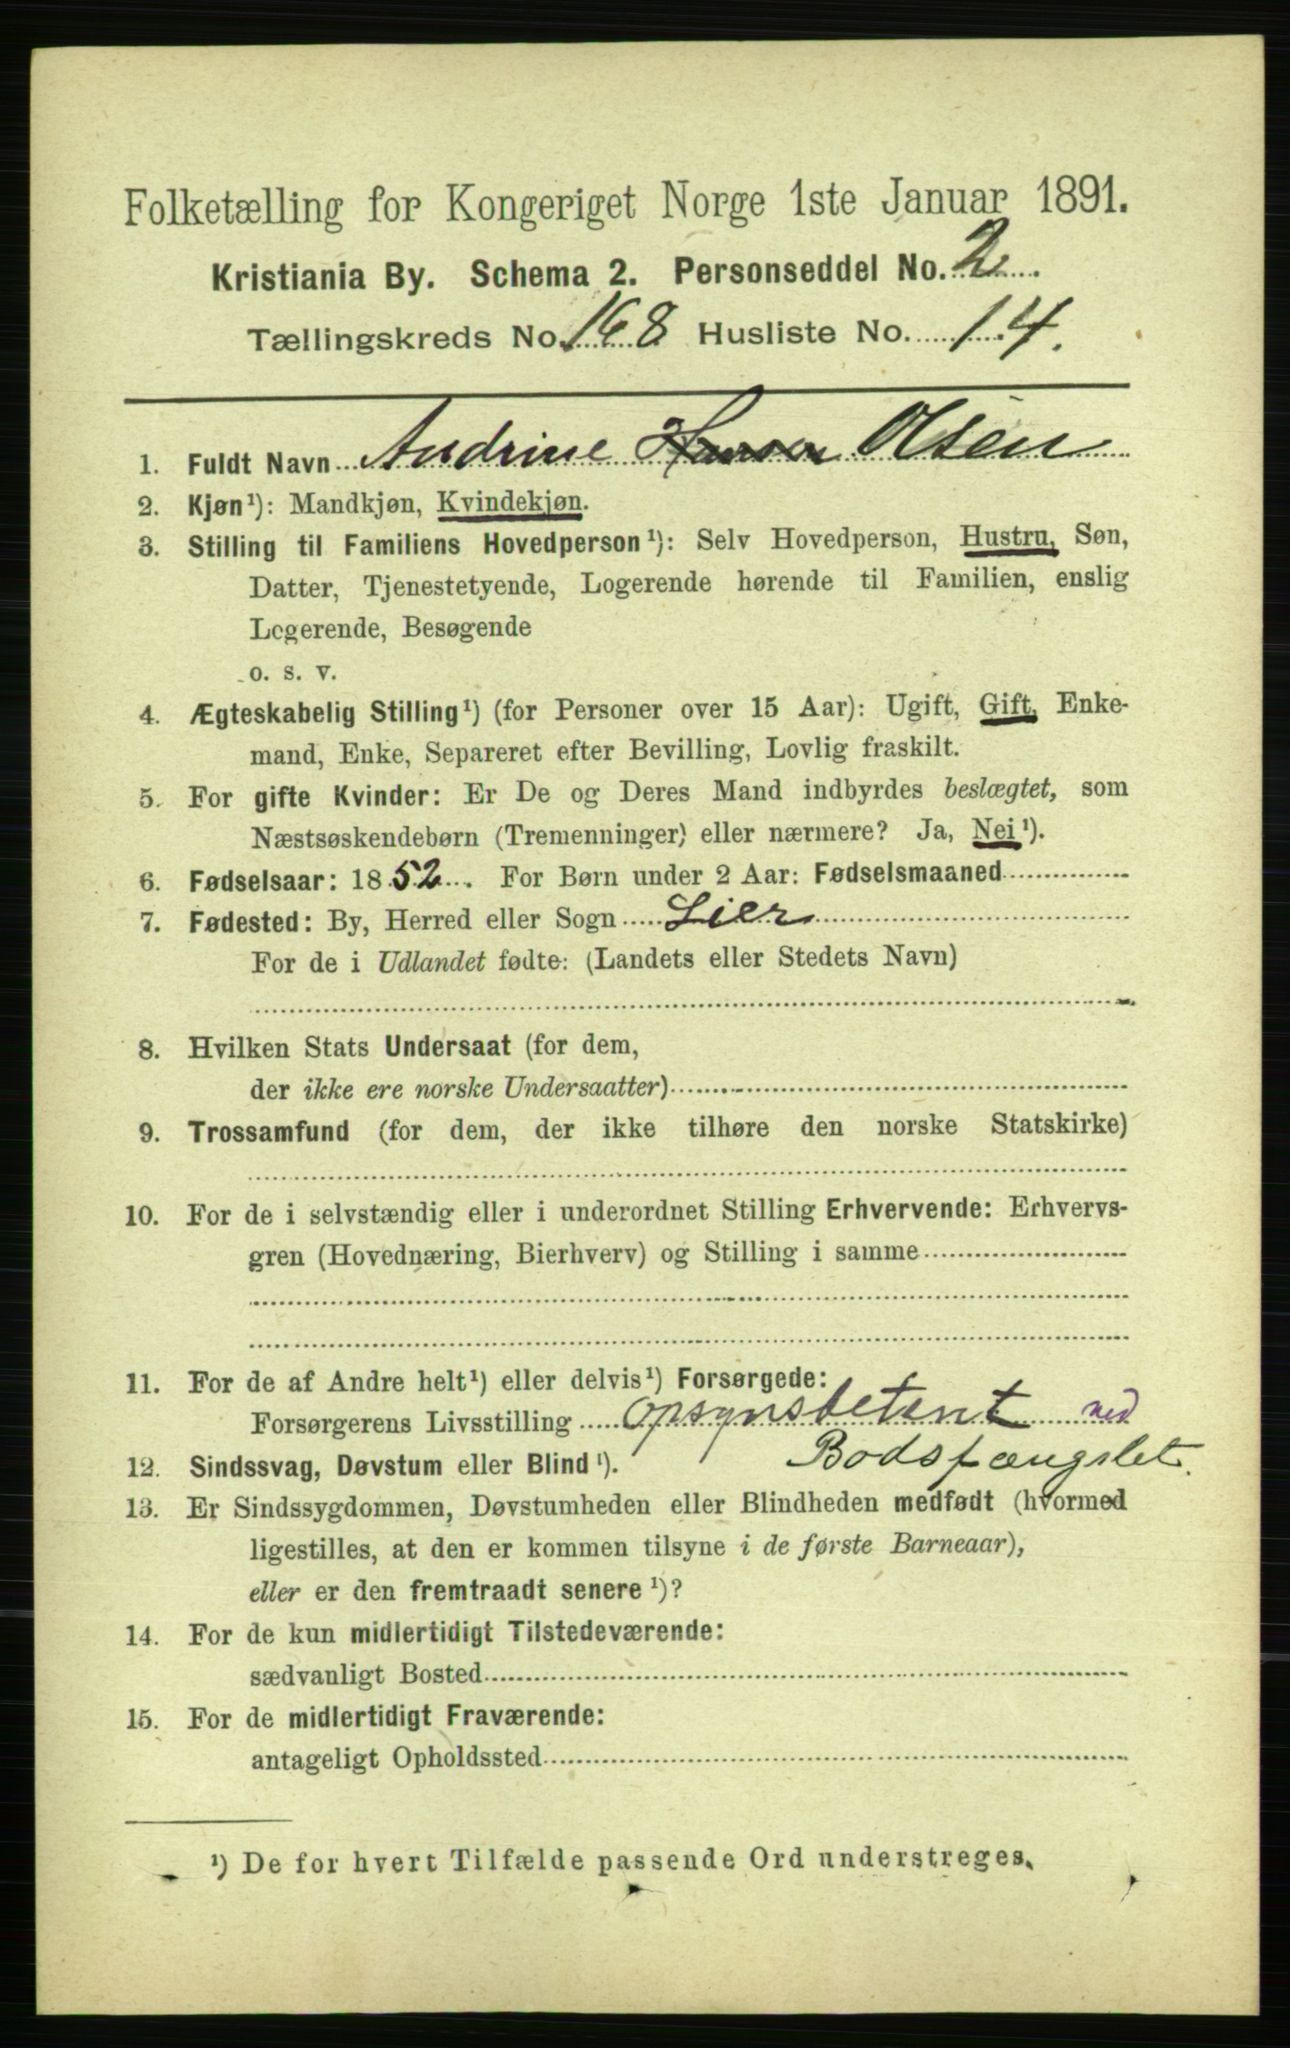 Folketælling for Kongeriget Norge 1ste Januar 1891.
Kristiania By. Schema 2. Personseddel No. 2
Tællingskreds No. 168 Husliste No. 14.
1. Fuldt Navn Andrine Hansen Olsen
2. Kjøn¹): Mandkjøn, Kvindekjøn.
3. Stilling til Familiens Hovedperson¹): Selv Hovedperson, Hustru, Søn,
Datter, Tjenestetyende, Logerende hørende til Familien, enslig
Logerende, Besøgende
o. s. v.
4. Ægteskabelig Stilling¹) (for Personer over 15 Aar): Ugift, Gift, Enke-
mand, Enke, Separeret efter Bevilling, Lovlig fraskilt.
5. For gifte Kvinder: Er De og Deres Mand indbyrdes beslægtet, som
Næstsøskendebørn (Tremenninger) eller nærmere? Ja, Nei¹).
6. Fødselsaar: 1852. For Børn under 2 Aar: Fødselsmaaned
7. Fødested: By, Herred eller Sogn Lier
For de i Udlandet fødte: (Landets eller Stedets Navn)
8. Hvilken Stats Undersaat (for dem,
der ikke ere norske Undersaatter)
9. Trossamfund (for dem, der ikke tilhøre den norske Statskirke)
10. For de i selvstændig eller i underordnet Stilling Erhvervende: Erhvervs-
gren (Hovednæring, Bierhverv) og Stilling i samme
11. For de af Andre helt¹) eller delvis¹) Forsørgede:
Forsørgerens Livsstilling opsynsbetjent ved
Bodsfængslet.
12. Sindssvag, Døvstum eller Blind¹).
13. Er Sindssygdommen, Døvstumheden eller Blindheden medfødt (hvormed
ligestilles, at den er kommen tilsyne i de første Barneaar),
eller er den fremtraadt senere¹)?
14. For de kun midlertidigt Tilstedeværende:
sædvanligt Bosted
15. For de midlertidigt Fraværende:
antageligt Opholdssted
¹) De for hvert Tilfælde passende Ord understreges.